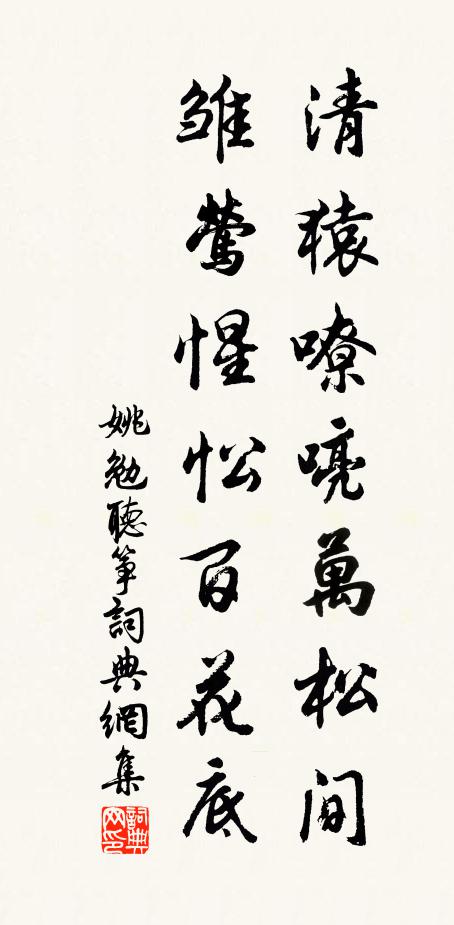 清猿嘹喨萬松間
雛鶯惺忪百花底
姚勉聽箏詞典網集
詞典網印